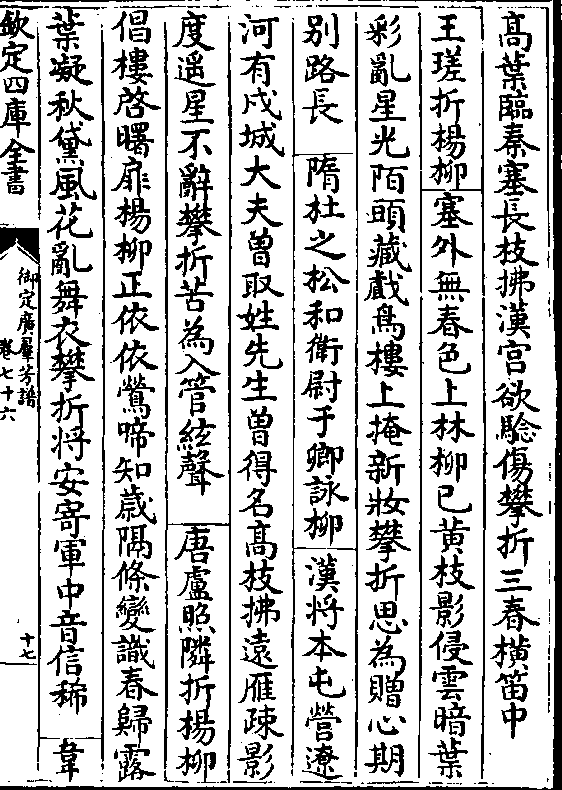 高葉臨秦塞長枝拂漢宫欲騐傷攀折三春横笛中
王瑳折楊柳塞外無春色上林柳已黄枝影侵雲暗葉
彩亂星光陌頭藏戲鳥樓上掩新妝攀折思為贈心期
别路長 隋杜之松和衛尉于卿詠柳漢將本屯營遼
河有戍城大夫曾取姓先生曾得名高枝拂遠雁疎影
度遥星不辭攀折苦為入管絃聲 唐盧照隣折楊柳
倡樓啓曙扉楊柳正依依鶯啼知歳隔條變識春歸露
葉凝秋黛風花亂舞衣攀折將安寄軍中音信稀 韋
欽定四庫全書
御定廣羣芳譜
卷七十六
十七